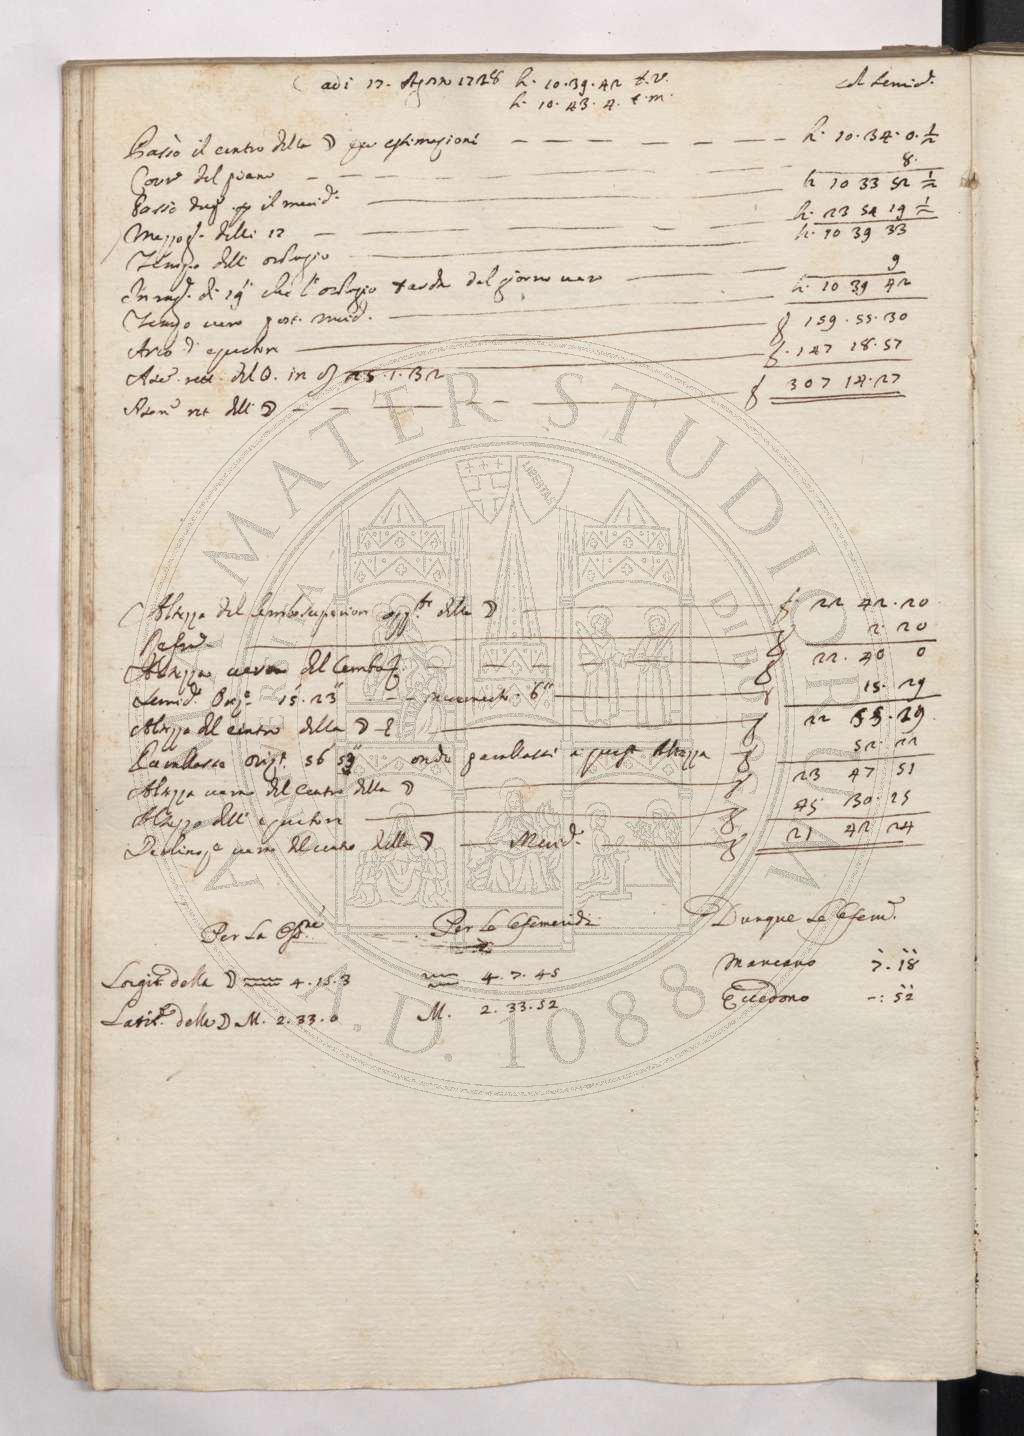 adi 17. Agosto 1728 h. 10.39.42 t.v. al Semid.
h. 10.43.4. t.m.
Passò il centro della ☽ per estimazioni h. 10.34.0.½
Corr.e del piano 8.
Passò il merid.e h 10 33 52 ½
Mezzog.o delli 17 h. 23 54 19 ½
Tempo dell' orologio h. 10 39 33
In rag.e di 19" che l'orologio tarda dal giorno vero 9
Tempo vero post. merid. h. 10 39 42
Arco d' equatore g 159.55.30
Asc. ret. del ☉. in ♌ 25.1.32 g. 147 18.57
Ascen. ret. dell ☽ g 307 14.27
Altezza del lembo superiore app.te della ☽ g. 22 42.20
Refraz. 2.20
Altezza vera del lembo 22.40 0
Semid. Oriz. 15.23" aumento 6" 15.29
Altezza del centro della ☽ 22 55.29
Parallasse oriz. 56 59" onde parallasse a quest' Altezza 52.22
Altezza vera del Centro della ☽ 23 47 51
Altezza dell' equatore 45 30.15
Declinaz.e vera del centro della ☽ Merid. 21 42 24
Per La Oss.ne Per Le Efemeridi Dunque Le Efem.
Longit. della ☽ ♒ 4.15.3 ♒ 4.7.45 Mancano 7.18
Latit. della ☽ M. 2.33.0 M. 2.33.52 Eccedono -: 52
ALMA MATER STUDIORUM
A.D. 1088
LIBERTAS